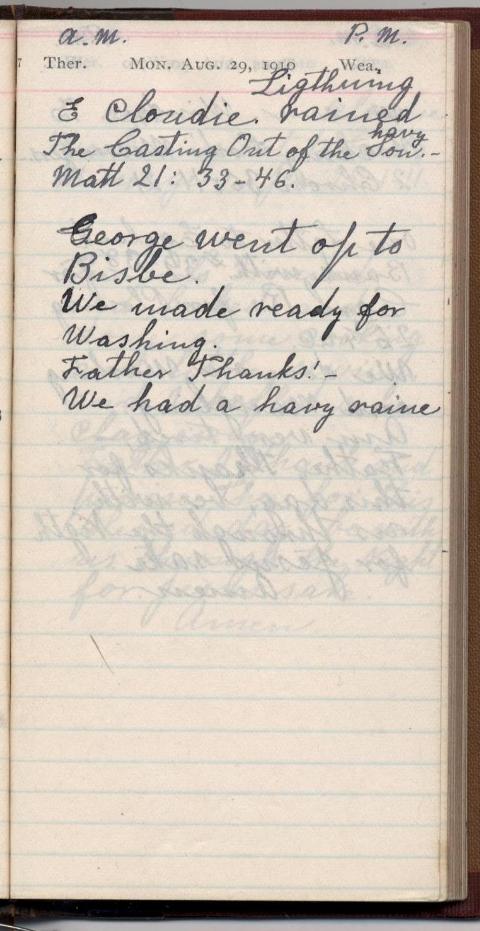 a.m. P.M.
Ther. MON. AUG. 29, 1910 Wea.
Ligthning
E Cloudie. rained
havy
The Casting Out of the Son.-
Matt 21: 33-46.
George went op to
Bisbe.
We made ready for
Washing.
Father Thanks!-
We had a havy raine